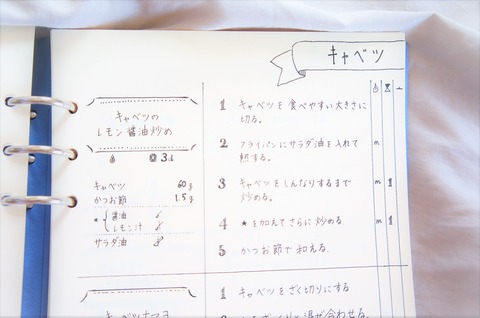 キャベツ
キャベツの
レモン醤油炒め
3分
キャベツ 60g
かつお節 1.5g
★ 醤油
レモン汁
サラダ油
1 キャベツを食べやすい大きさに
切る。
2 フライパンにサラダ油を入れて
熱する。 m
3 キャベツをしんなりするまで
炒める。 m 1
4 ★を加えてさらに炒める。 m 1
5 かつお節で和える。
キャベツナマヨ
1 キャベツをざく切りにする